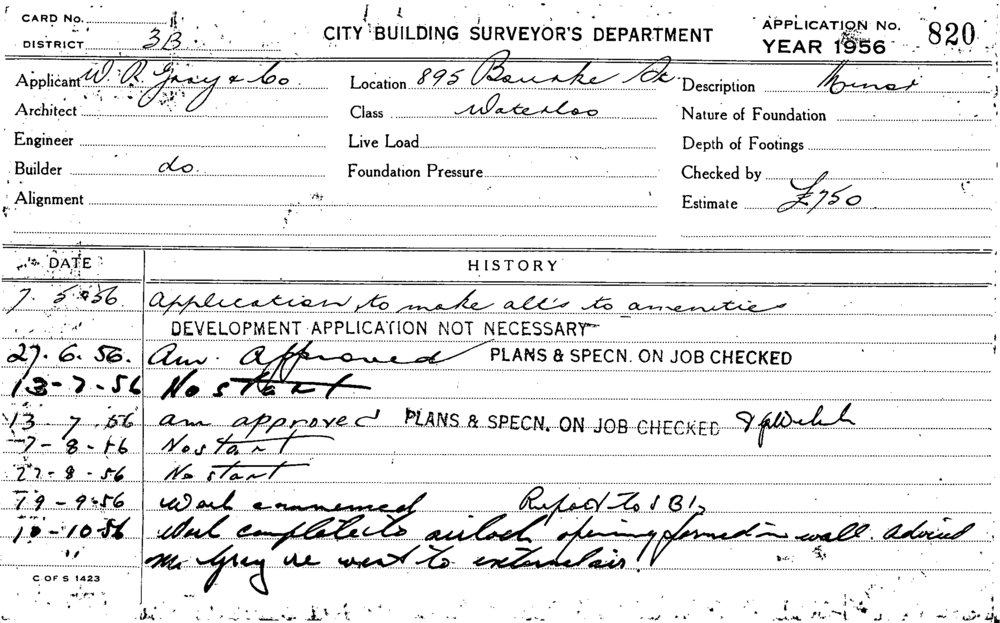 CARD No.
DISTRICT 3B
CITY BUILDING SURVEYOR'S DEPARTMENT
APPLICATION No. 820
YEAR 1956
Applicant W. R. Gray & Co Location 895 Bourke St. Description Minor
Architect Class Waterloo Nature of Foundation
Engineer Live Load Depth of Footings
Builder do. Foundation Pressure Checked by
Alignment Estimate £750
DATE HISTORY
7. 5. 56 Application to make alt's to amenities
DEVELOPMENT APPLICATION NOT NECESSARY
27. 6. 56. Am. Approved PLANS & SPECN. ON JOB CHECKED
13-7-56 No start
13. 7. 56 am approved PLANS & SPECN. ON JOB CHECKED
7-8-56 No start
27-8-56 No start
19-9-56 Work commenced Report to
10-10-56 Work complete to airlock opening formed in wall. Advised
" Mr Gray re vent to external air.
C OF S 1423